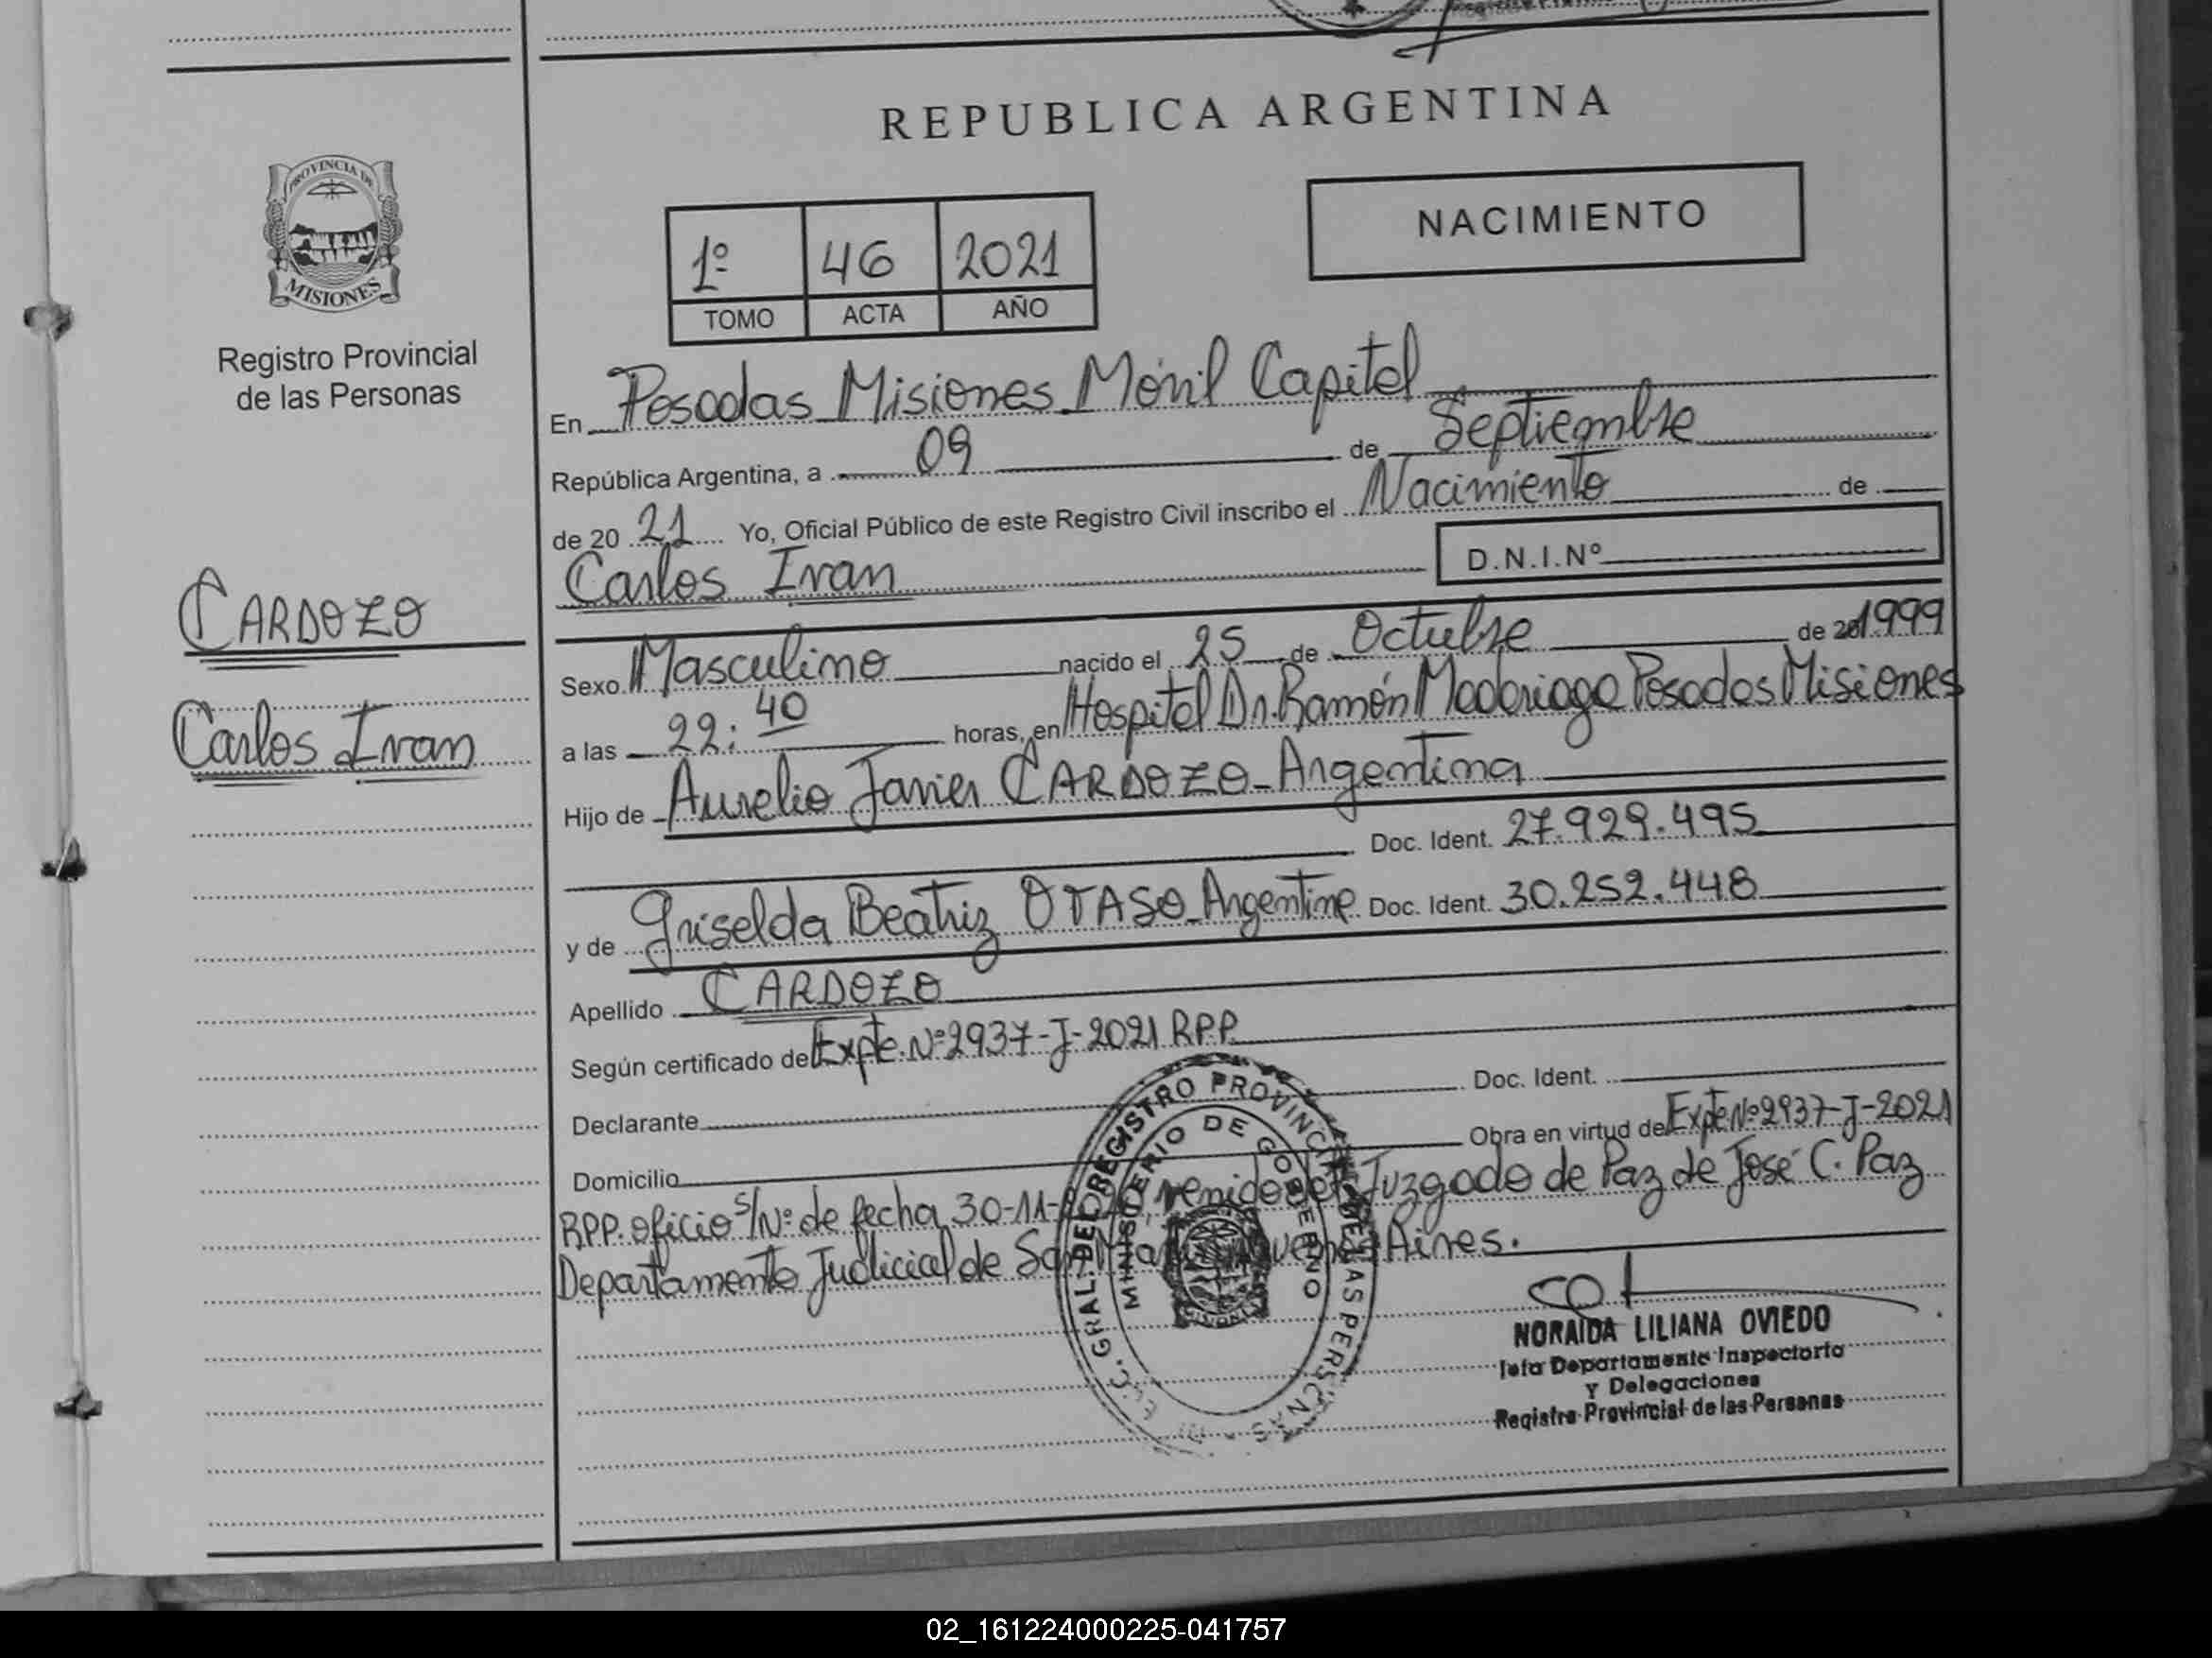 REPUBLICA ARGENTINA
PROVINCIA DE
MISIONES
Registro Provincial
de las Personas
NACIMIENTO
1º 46 2021
TOMO ACTA AÑO
CARDOZO
Carlos Ivan
En Posadas Misiones Móvil Capital
República Argentina, a 09 de Septiembre
de 20 21 Yo, Oficial Público de este Registro Civil inscribo el Nacimiento de
Carlos Ivan D.N.I.Nº
Sexo Masculino nacido el 25 de Octubre de 20 1999
a las 22:40 horas, en Hospital Dr. Ramón Madariaga Posadas Misiones
Hijo de Aurelio Javier CARDOZO - Argentina
Doc. Ident. 27.929.495
y de Griselda Beatriz OTASO - Argentina Doc. Ident. 30.252.448
Apellido CARDOZO
Según certificado de Expte. Nº 2937-J-2021 RPP.
Declarante Doc. Ident.
Domicilio Obra en virtud de Expte Nº 2937-J-2021
RPP. oficio S/Nº de fecha 30-11- Juzgado de Paz de José C. Paz
Departamento Judicial de San Aires.
GRAL. DEL REGISTRO PROVINCIAL DE LAS PERSONAS
MINISTERIO DE GOBIERNO
NORAIDA LILIANA OVIEDO
Jefa Departamento Inspectoria
y Delegaciones
Registro Provincial de las Personas
02_161224000225-041757